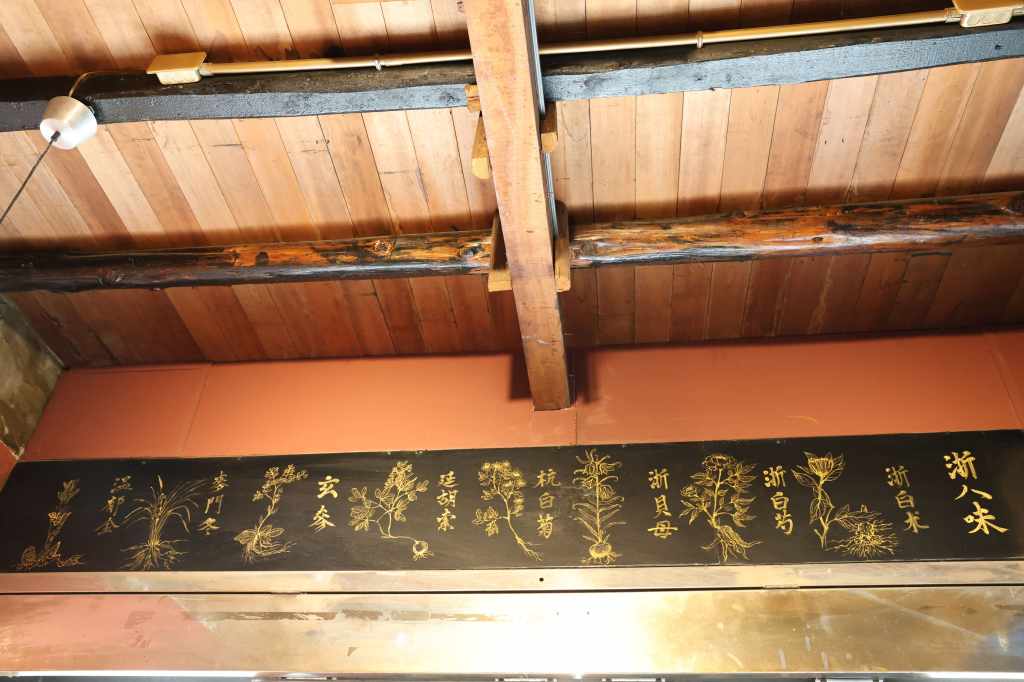 浙八味
浙白术
浙白芍
浙貝母
杭白菊
延胡索
玄参
麦門冬
温郁金